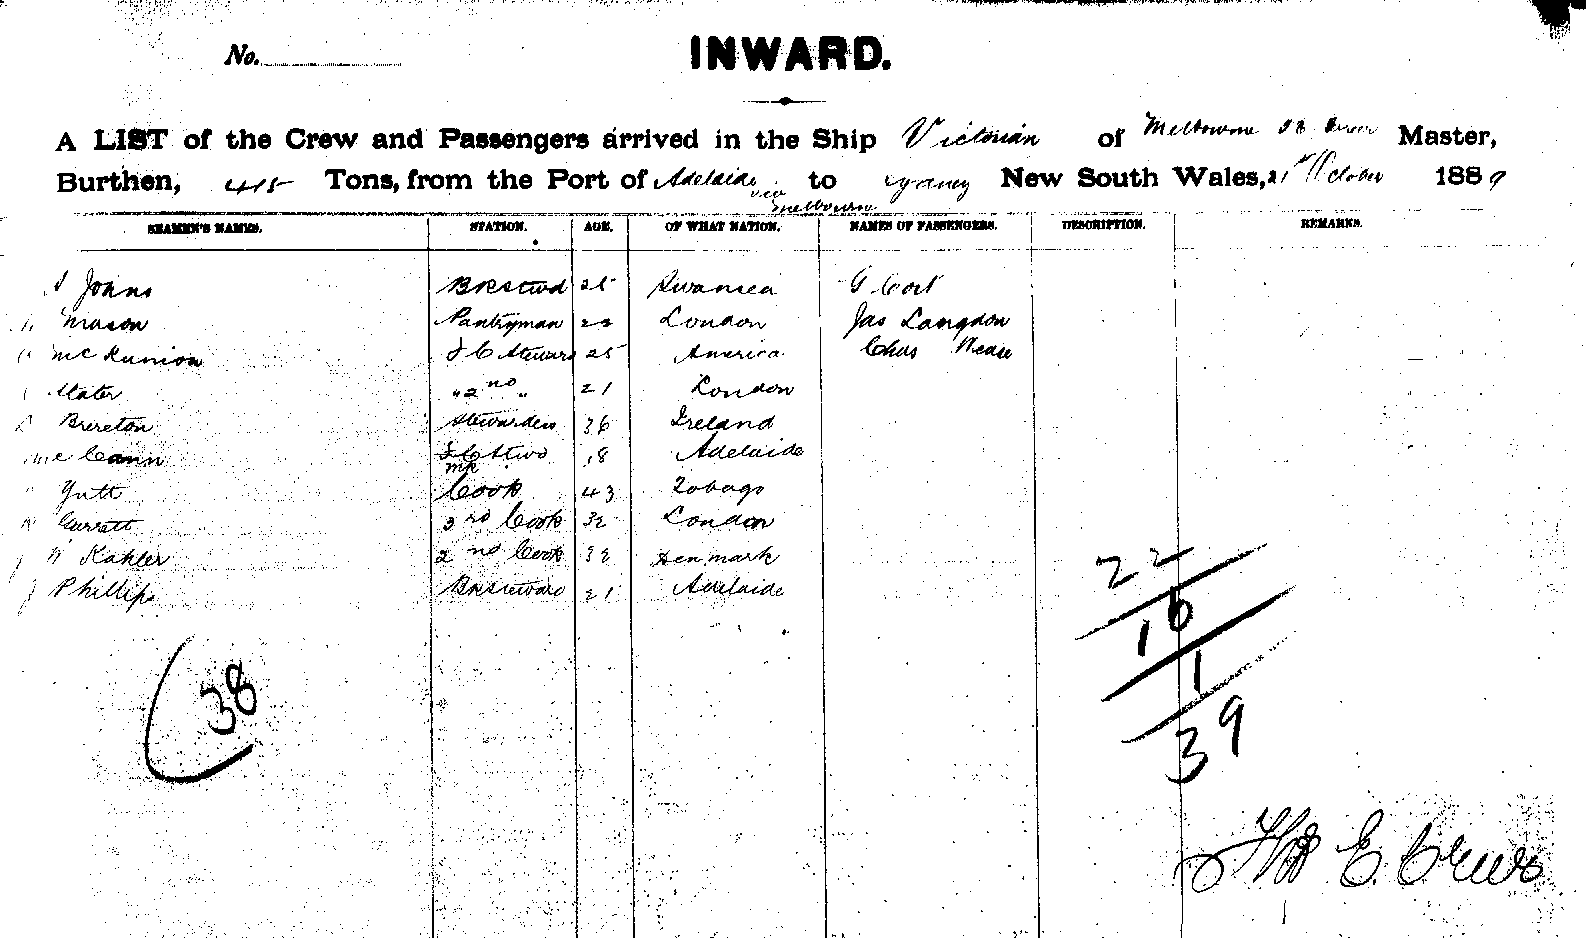 No.
INWARD.
A LIST of the Crew and Passengers arrived in the Ship Victorian of Melbourne Master,
Burthen, 415 Tons, from the Port of Adelaide via Melbourne to Sydney New South Wales, 21st October 1889
SEAMEN'S NAMES. STATION. AGE. OF WHAT NATION. NAMES OF PASSENGERS. DESCRIPTION. REMARKS.
Johns Swansea G Cort
Mason Pantryman London Jas Langdon
Mc Runion Steward 25 America Chas
Slater " 2nd " 21 London
Brereton Stewardess 36 Ireland
Mc Cann 18 Adelaide
Yutt Cook 43 Tobago
Garratt 3rd Cook 32 London
Kahler 2nd Cook 32 Denmark
Phillips 21 Adelaide
22
16
1
39
38
E. Creer